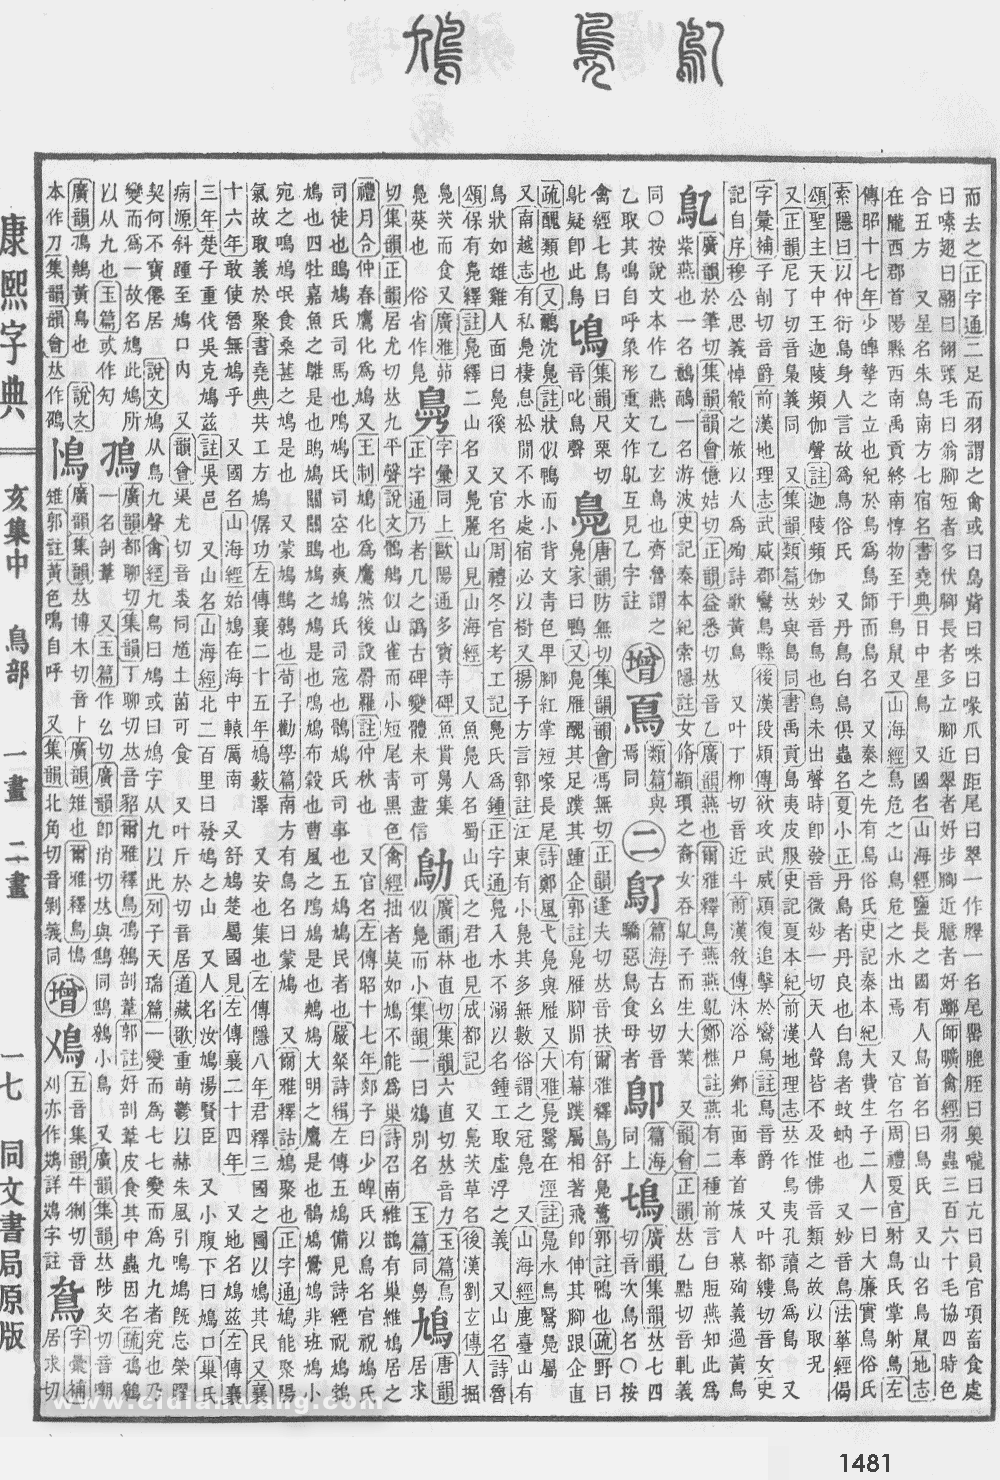 鳦 鳧 鳩
而去之正字通二足而羽謂之禽或曰鳥觜曰咮曰喙爪曰距尾曰翠一作臎一名尾罌膍胵曰奧嚨曰亢曰員官項畜食處
曰嗉翅曰翮曰翎頭毛曰翁腳短者多伏腳長者多立腳近翠者好步腳近臆者好躑師曠禽經羽蟲三百六十毛協四時色
合五方　又星名朱鳥南方七宿名書堯典日中星鳥　又國名山海經鹽長之國有人鳥首名曰鳥氏　又山名鳥鼠地志
在隴西郡首陽縣西南禹貢終南惇物至于鳥鼠又山海經鳥危之山鳥危之水出焉　又官名周禮夏官射鳥氏掌射鳥左
傳昭十七年少皥摯之立也紀於鳥爲鳥師而鳥名　又秦之先有鳥俗氏史記秦本紀大費生子二人一曰大廉實鳥俗氏
索隱曰以仲衍鳥身人言故爲鳥俗氏　又丹鳥白鳥俱蟲名夏小正丹鳥者丹良也白鳥者蚊蚋也　又妙音鳥法華經偈
頌聖主天中王迦陵頻伽聲註迦陵頻伽妙音鳥未出聲時卽發音微妙一切天人聲皆不及惟佛音類之故以取況
又正韻尼了切音裊義同　又集韻類篇𠀤與島同書禹貢島夷皮服史記夏本紀前漢地理志𠀤作鳥夷孔讀鳥爲島　又
字彙補子削切音爵前漢地理志武威郡鸞鳥縣後漢段熲傳欲攻武威熲復追擊於鸞鳥註鳥音爵　又叶都縷切音女史
記自序穆公思義悼殽之旅以人爲殉詩歌黃鳥　又叶丁柳切音近斗前漢敘傳沐浴尸鄉北面奉首旅人慕殉義過黃鳥
鳦 廣韻於筆切集韻韻會億姞切正韻益悉切𠀤音乙廣韻燕也爾雅釋鳥燕燕鳦鄭樵註燕有二種前言白脰燕知此爲
紫燕也一名鷾鴯一名游波史記秦本紀索隱註女脩顓頊之裔女吞鳦子而生大業　又韻會正韻𠀤乙點切音軋義
同○按說文本作乙燕乙乙玄鳥也齊魯謂之
乙取其鳴自呼象形重文作鳦互見乙字註
增 焉 類篇與焉同 二 鳭 篇海古幺切音驕惡鳥食母者 篇海同上
廣韻集韻𠀤七四切音次鳥名○按
禽經七鳥曰鳦疑卽此鳥
集韻尺栗切音叱鳥聲
鳧 唐韻防無切集韻韻會馮無切正韻逢夫切𠀤音扶爾雅釋鳥舒鳧鶩郭註鴨也疏野曰
鳧家曰鴨又鳧雁醜其足蹼其踵企郭註鳧雁腳閒有幕蹼屬相著飛卽伸其腳跟企直
疏醜類也又鸍沈鳧註狀似鴨而小背文靑色甲腳紅掌短喙長尾詩鄭風弋鳧與雁又大雅鳧鷖在涇註鳧水鳥鷖鳧屬
又南越志有私鳧棲息松閒不水處宿必以樹又揚子方言郭註江東有小鳧其多無數俗謂之冠鳧　又山海經鹿臺山有
鳥狀如雄雞人面曰鳧徯　又官名周禮冬官考工記鳧氏爲鍾正字通鳧入水不溺以名鍾工取虛浮之義　又山名詩魯
頌保有鳧繹註鳧繹二山名又鳧麗山見山海經　又魚鳧人名蜀山氏之君也見成都記　又鳧茨草名後漢劉立傳人掘
鳧茨而食又廣雅茆鳧葵也　俗省作鳬
字彙同上歐陽通多寶寺碑魚貫鳧集正字通乃者几之譌古碑變體未可盡信
廣韻林直切集韻六直切𠀤音力玉篇鳥似鳧而小集韻一曰鴔別名
玉篇同鳧
鳩 唐韻居求
切集韻正韻居尤切𠀤九平聲說文鶻鵃似山雀而小短尾靑黑色禽經拙者莫如鳩不能爲巢詩召南維鵲有巢維鳩居之
禮月令仲春鷹化爲鳩又王制鳩化爲鷹然後設罻羅註仲秋也　又官名左傳昭十七年郯子曰少皥氏以鳥名官祝鳩氏
司徒也鴡鳩氏司馬也鳲鳩氏司空也爽鳩氏司寇也鶻鳩氏司事也五鳩鳩民者也嚴粲詩緝左傳五鳩備見詩經祝鳩鵻
鳩也四牡嘉魚之鵻是也鴡鳩關關鴡鳩之鳩是也鳲鳩布穀也曹風之鳲鳩是也鷞鳩大明之鷹是也鶻鳩鷽鳩非班鳩小
宛之鳴鳩氓食桑葚之鳩是也　又蒙鳩鷦鷯也荀子勸學篇南方有鳥名曰蒙鳩　又爾雅釋詁鳩聚也正字通鳩能聚陽
氣故取義於聚書堯典共工方鳩僝功左傳襄二十五年鳩藪澤　又安也集也左傳隱八年君釋三國之圖以鳩其民又襄
十六年敢使魯無鳩乎　又國名山海經始鳩在海中轅厲南　又舒鳩楚屬國見左傳襄二十四年　又地名鳩茲左傳襄
三年楚子重伐吳克鳩茲註吳邑　又山名山海經北二百里曰發鳩之山　又人名汝鳩湯賢臣　又小腹下曰鳩口巢氏
病源斜踵至鳩口內　又韻會渠尤切音裘同馗土菌可食　又叶斤於切音居道藏歌重萌鬱以赫朱風引鳴鳩旣忘榮曜
契何不寶僊居　說文鳩从鳥九聲禽經九鳥曰鳩或曰鳩字从九以此列子天瑞篇一變而爲七七變而爲九九者究也乃
變而爲一故名鳩此鳩所以从九也玉篇或作勼
鳭 廣韻都聊切集韻丁聊切𠀤音貂爾雅釋鳥鳭鷯剖葦郭註好剖葦皮食其中蟲因名疏鳭鷯
一名剖葦　又玉篇作幺切廣韻卽消切𠀤與鷦同鷦鷯小鳥　又廣韻集韻𠀤陟交切音嘲
廣韻鳭鷯黃鳥也　說文本作刀集韻韻會𠀤作鵃
廣韻集韻𠀤博木切音卜廣韻雉也爾雅釋鳥鳪雉郭註黃色鳴自呼　又集韻北角切音剝義同
增 鳼 五音集韻牛刈切音刈亦作鴱詳鴱字註
字彙補居求切
康熙字典　亥集中　鳥部　一畫　二畫　一七　同文書局原版
www.cidianwang.com
1481